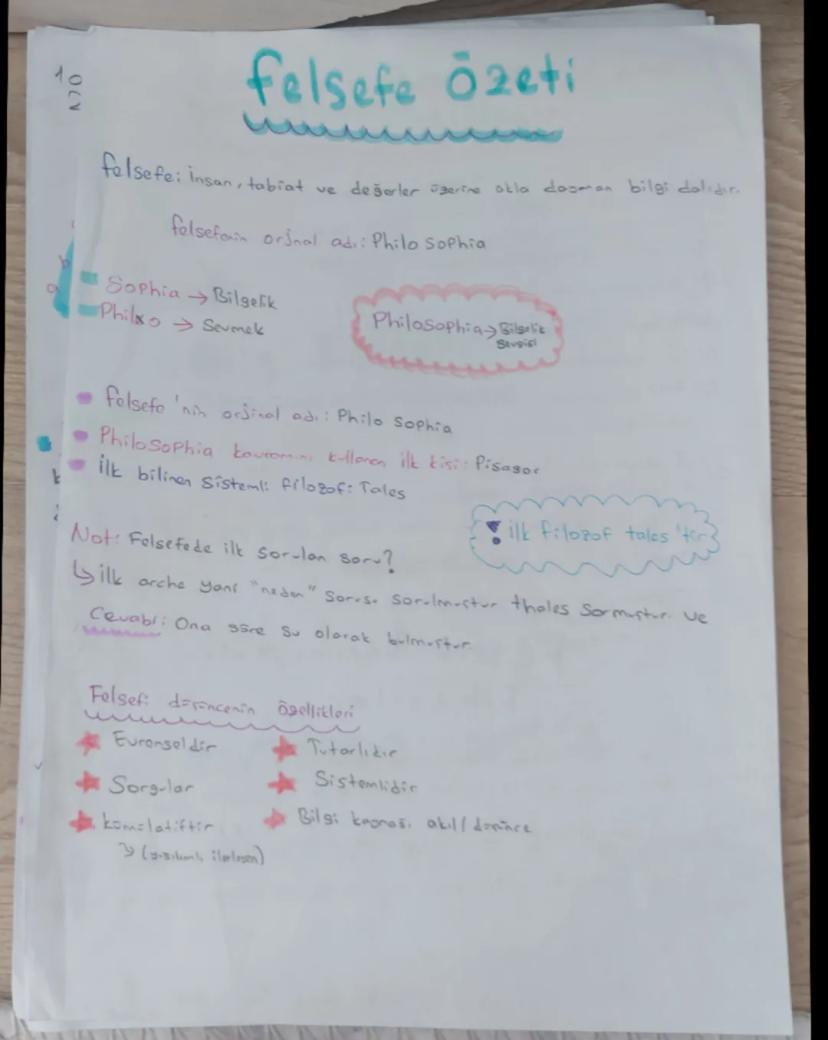 10
Felsefe Özeti
felsefe: İnsan, tabiat ve değerler üzerine akla dayanan bilgi dalıdır.
felsefenin orjnal adı: Philo Sophia
Sophia → Bilgelik
Philo → Sevmek
Philosophia → Bilgelik
Sevgisi
felsefe'nin orjinal adı: Philo Sophia
Philosophia kavramını kullanan ilk kişi: Pisagor
ilk bilinen Sistemli filozof: Tales
! ilk filozof tales'tir
Not: Felsefede ilk sorulan soru?
↳ ilk arche yani "neden" sorusu sorulmuştur thales sormuştur ve
Cevabı: Ona göre Su olarak bulmuştur.
Felsefi düşüncenin özellikleri
Evrenseldir
Tutarlıdır
Sorgular
Sistemlidir
kümülatiftir
Bilgi kaynağı akıl/düşünce
(yığılımlı ilerleyen)